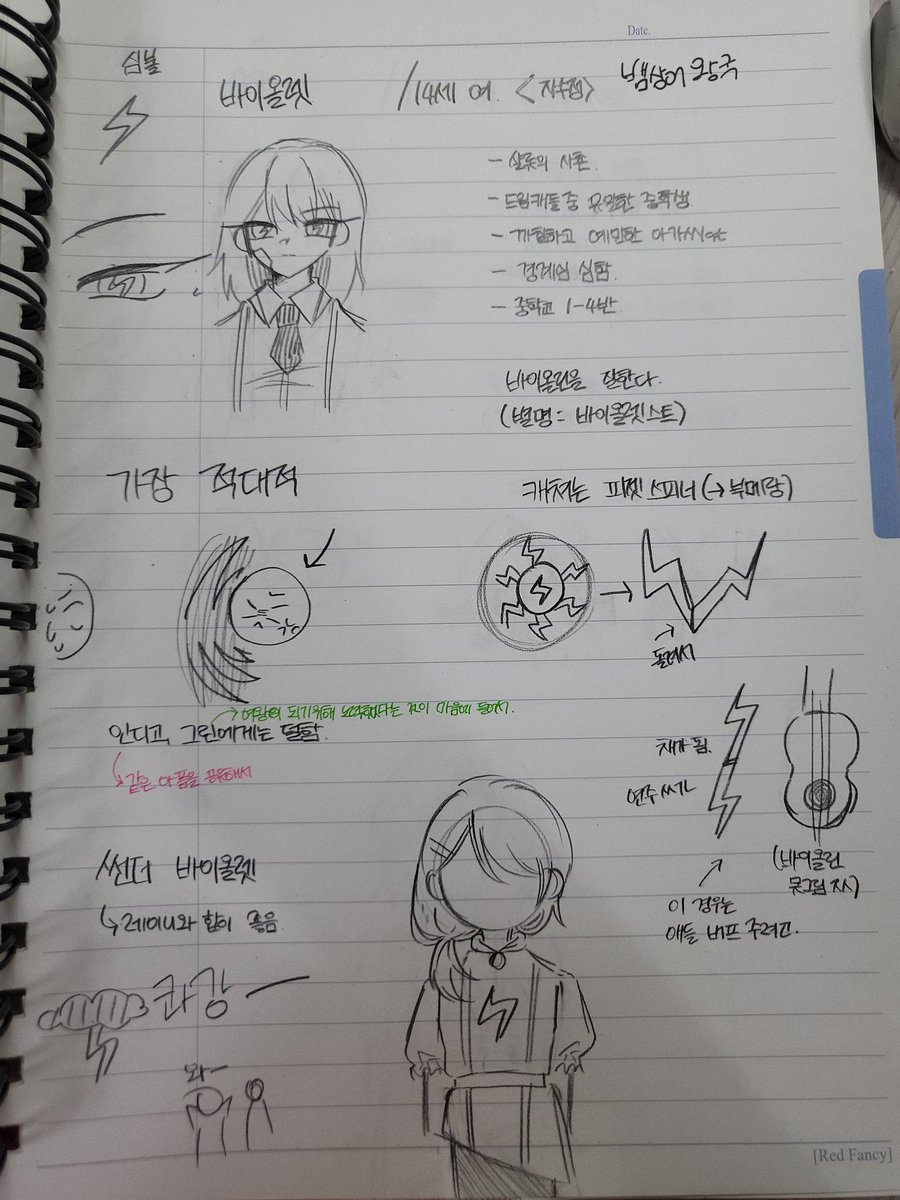 Date.
심볼
바이올렛 /14세 여. <자수정> 뱀상어 왕국
- 샬롯의 사촌
- 드림캐들 중 유일한 중학생
- 까칠하고 예민한 아가씨
- 경계심 심함.
- 중학교 1-4반
바이올린을 잘한다.
(별명 = 바이올렛스트)
가장 적대적
캐쳐는 피젯스피너 (→ 부메랑)
돌려서
되기위해 노력했다는 것이 마음에 들어서.
인디고, 그린에게는 덜함.
같은 아픔을 공유해서
채가 됨.
연주 씨가
(바이올린
못그림 ㅈㅅ)
이 경우는
애들 버프 주려고.
썬더 바이올렛
↳ 레이니와 합이 좋음
콰강ㅡ
와ㅡ
[Red Fancy]